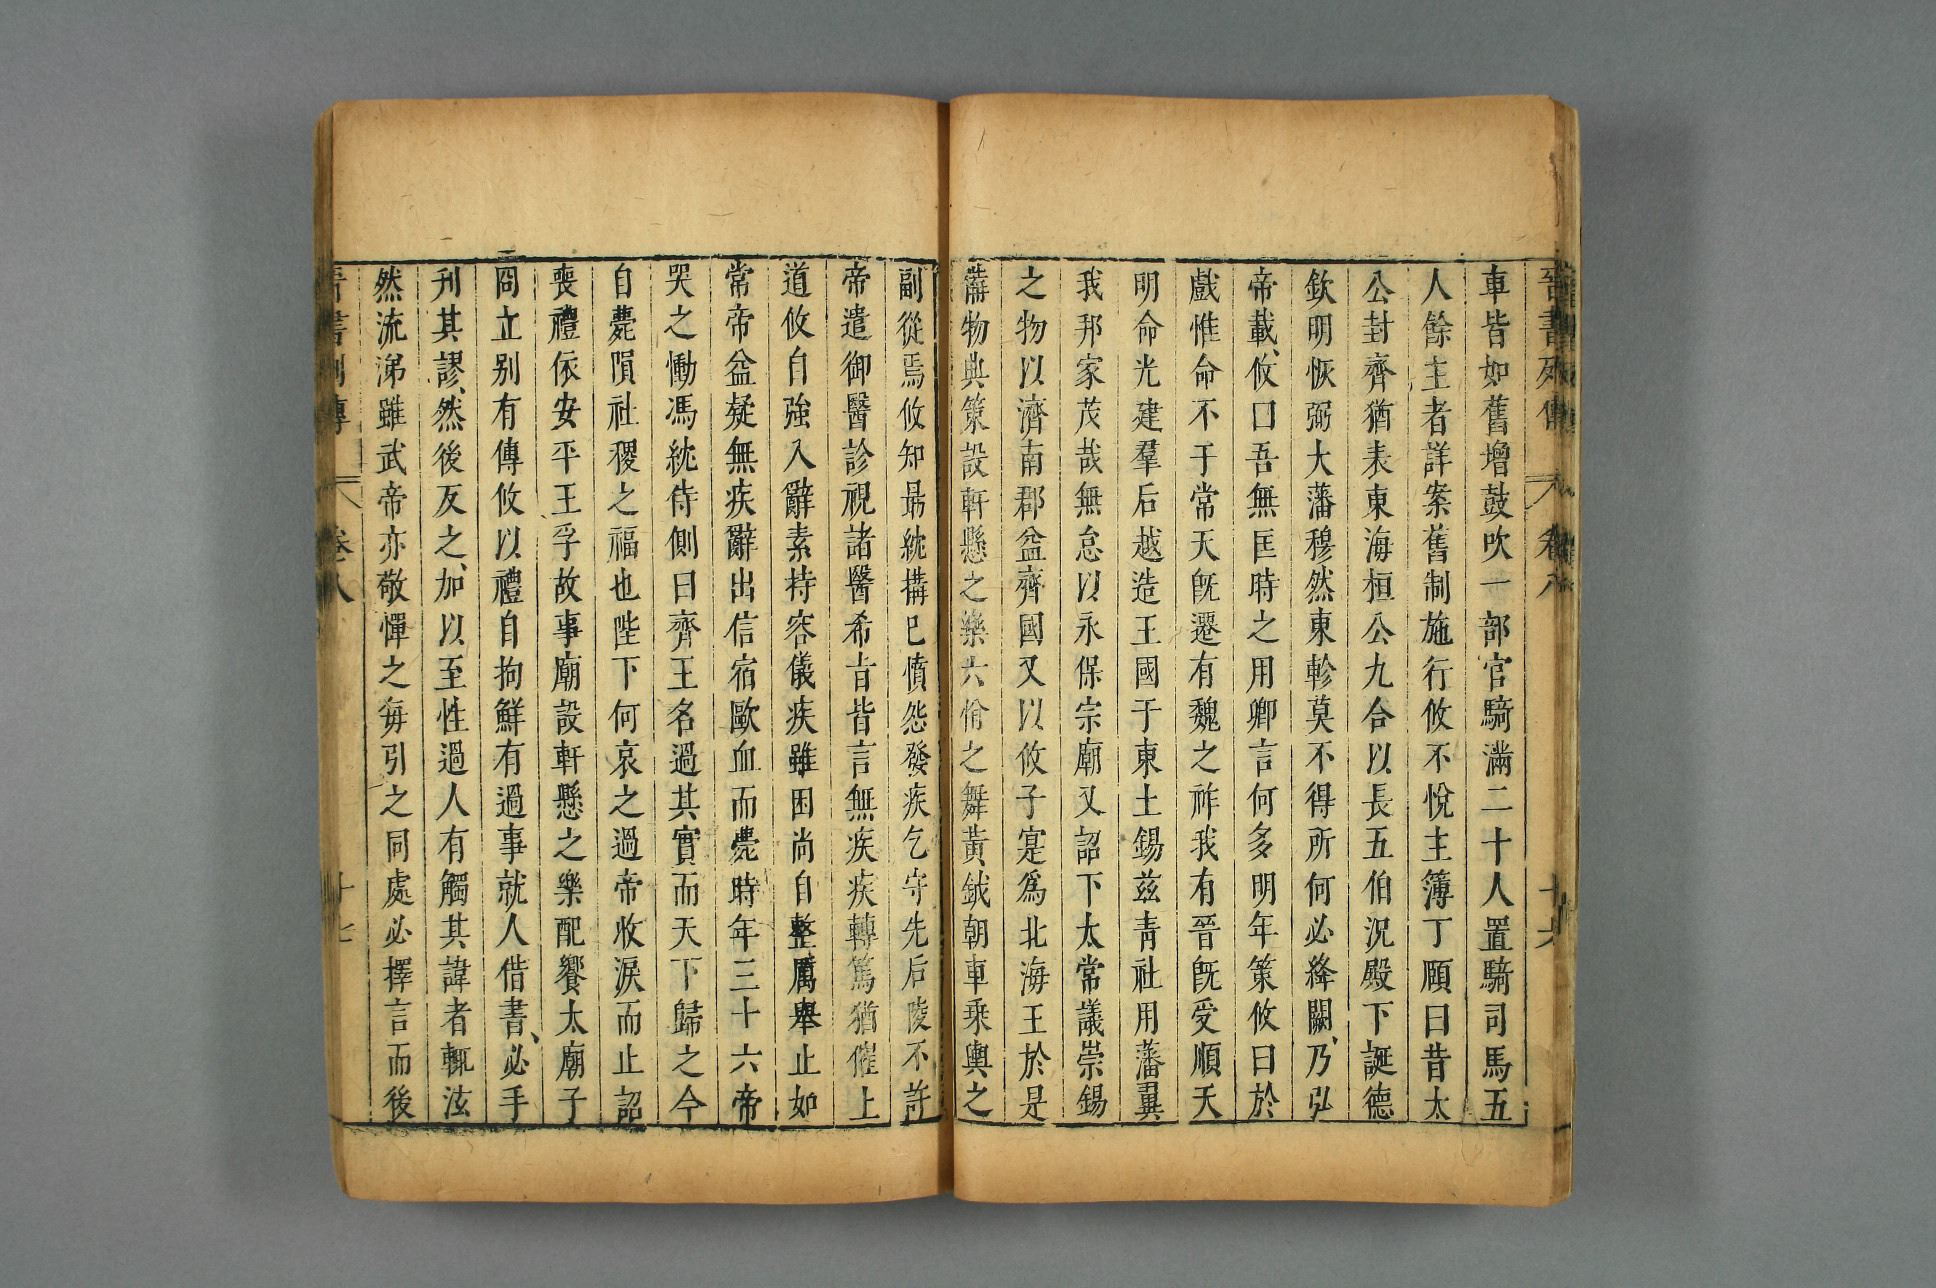 晉書列傳 卷八 十六
車皆如舊增鼓吹一部官騎滿二十人置騎司馬五
人餘主者詳案舊制施行攸不悅主簿丁頤曰昔太
公封齊猶表東海桓公九合以長五伯況殿下誕德
欽明恢弼大藩穆然東軫莫不得所何必絳闕乃弘
帝載攸曰吾無匡時之用卿言何多明年策攸曰於
戲惟命不于常天旣遷有魏之祚我有晉旣受順天
明命光建羣后越造王國于東土錫茲靑社用藩翼
我邦家茂哉無怠以永保宗廟又詔下太常議崇錫
之物以濟南郡益齊國又以攸子寔爲北海王於是
備物典策設軒懸之樂六佾之舞黃鉞朝車乘輿之
副從焉攸知勗紞搆已憤怨發疾乞守先后陵不許
帝遣御醫診視諸醫希旨皆言無疾疾轉篤猶催上
道攸自強入辭素持容儀疾雖困尚自整厲舉止如
常帝益疑無疾辭出信宿歐血而薨時年三十六帝
哭之慟馮紞侍側曰齊王名過其實而天下歸之今
自薨隕社稷之福也陛下何哀之過帝收淚而止詔
喪禮依安平王孚故事廟設軒懸之樂配饗太廟子
冏立别有傳攸以禮自拘鮮有過事就人借書必手
刋其謬然後反之加以至性過人有觸其諱者輒泫
然流涕雖武帝亦敬憚之每引之同處必擇言而後
晉書列傳 卷八 十七